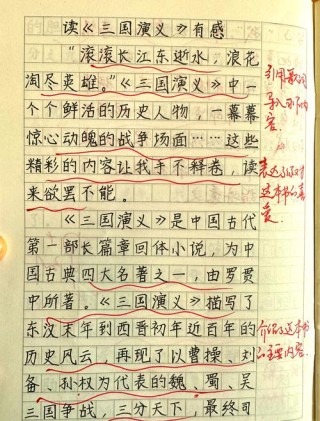 读《三国演义》有感
“滚滚长江东逝水，浪花
淘尽英雄。”《三国演义》中一
个个鲜活的历史人物，一幕幕
惊心动魄的战争场面……这些
精彩的内容让我手不释卷，读
来欲罢不能。
《三国演义》是中国古代
第一部长篇章回体小说，为中
国古典四大名著之一，由罗贯
中所著。《三国演义》描写了
东汉末年到西晋初年近百年的
历史风云，再现了以曹操、刘
备、孙权为代表的魏、蜀、吴
三国争战，三分天下，最终司
引用歌词
导入
容.
表达了你对
这本书的喜
爱.
介绍了这本书
的主要内容.